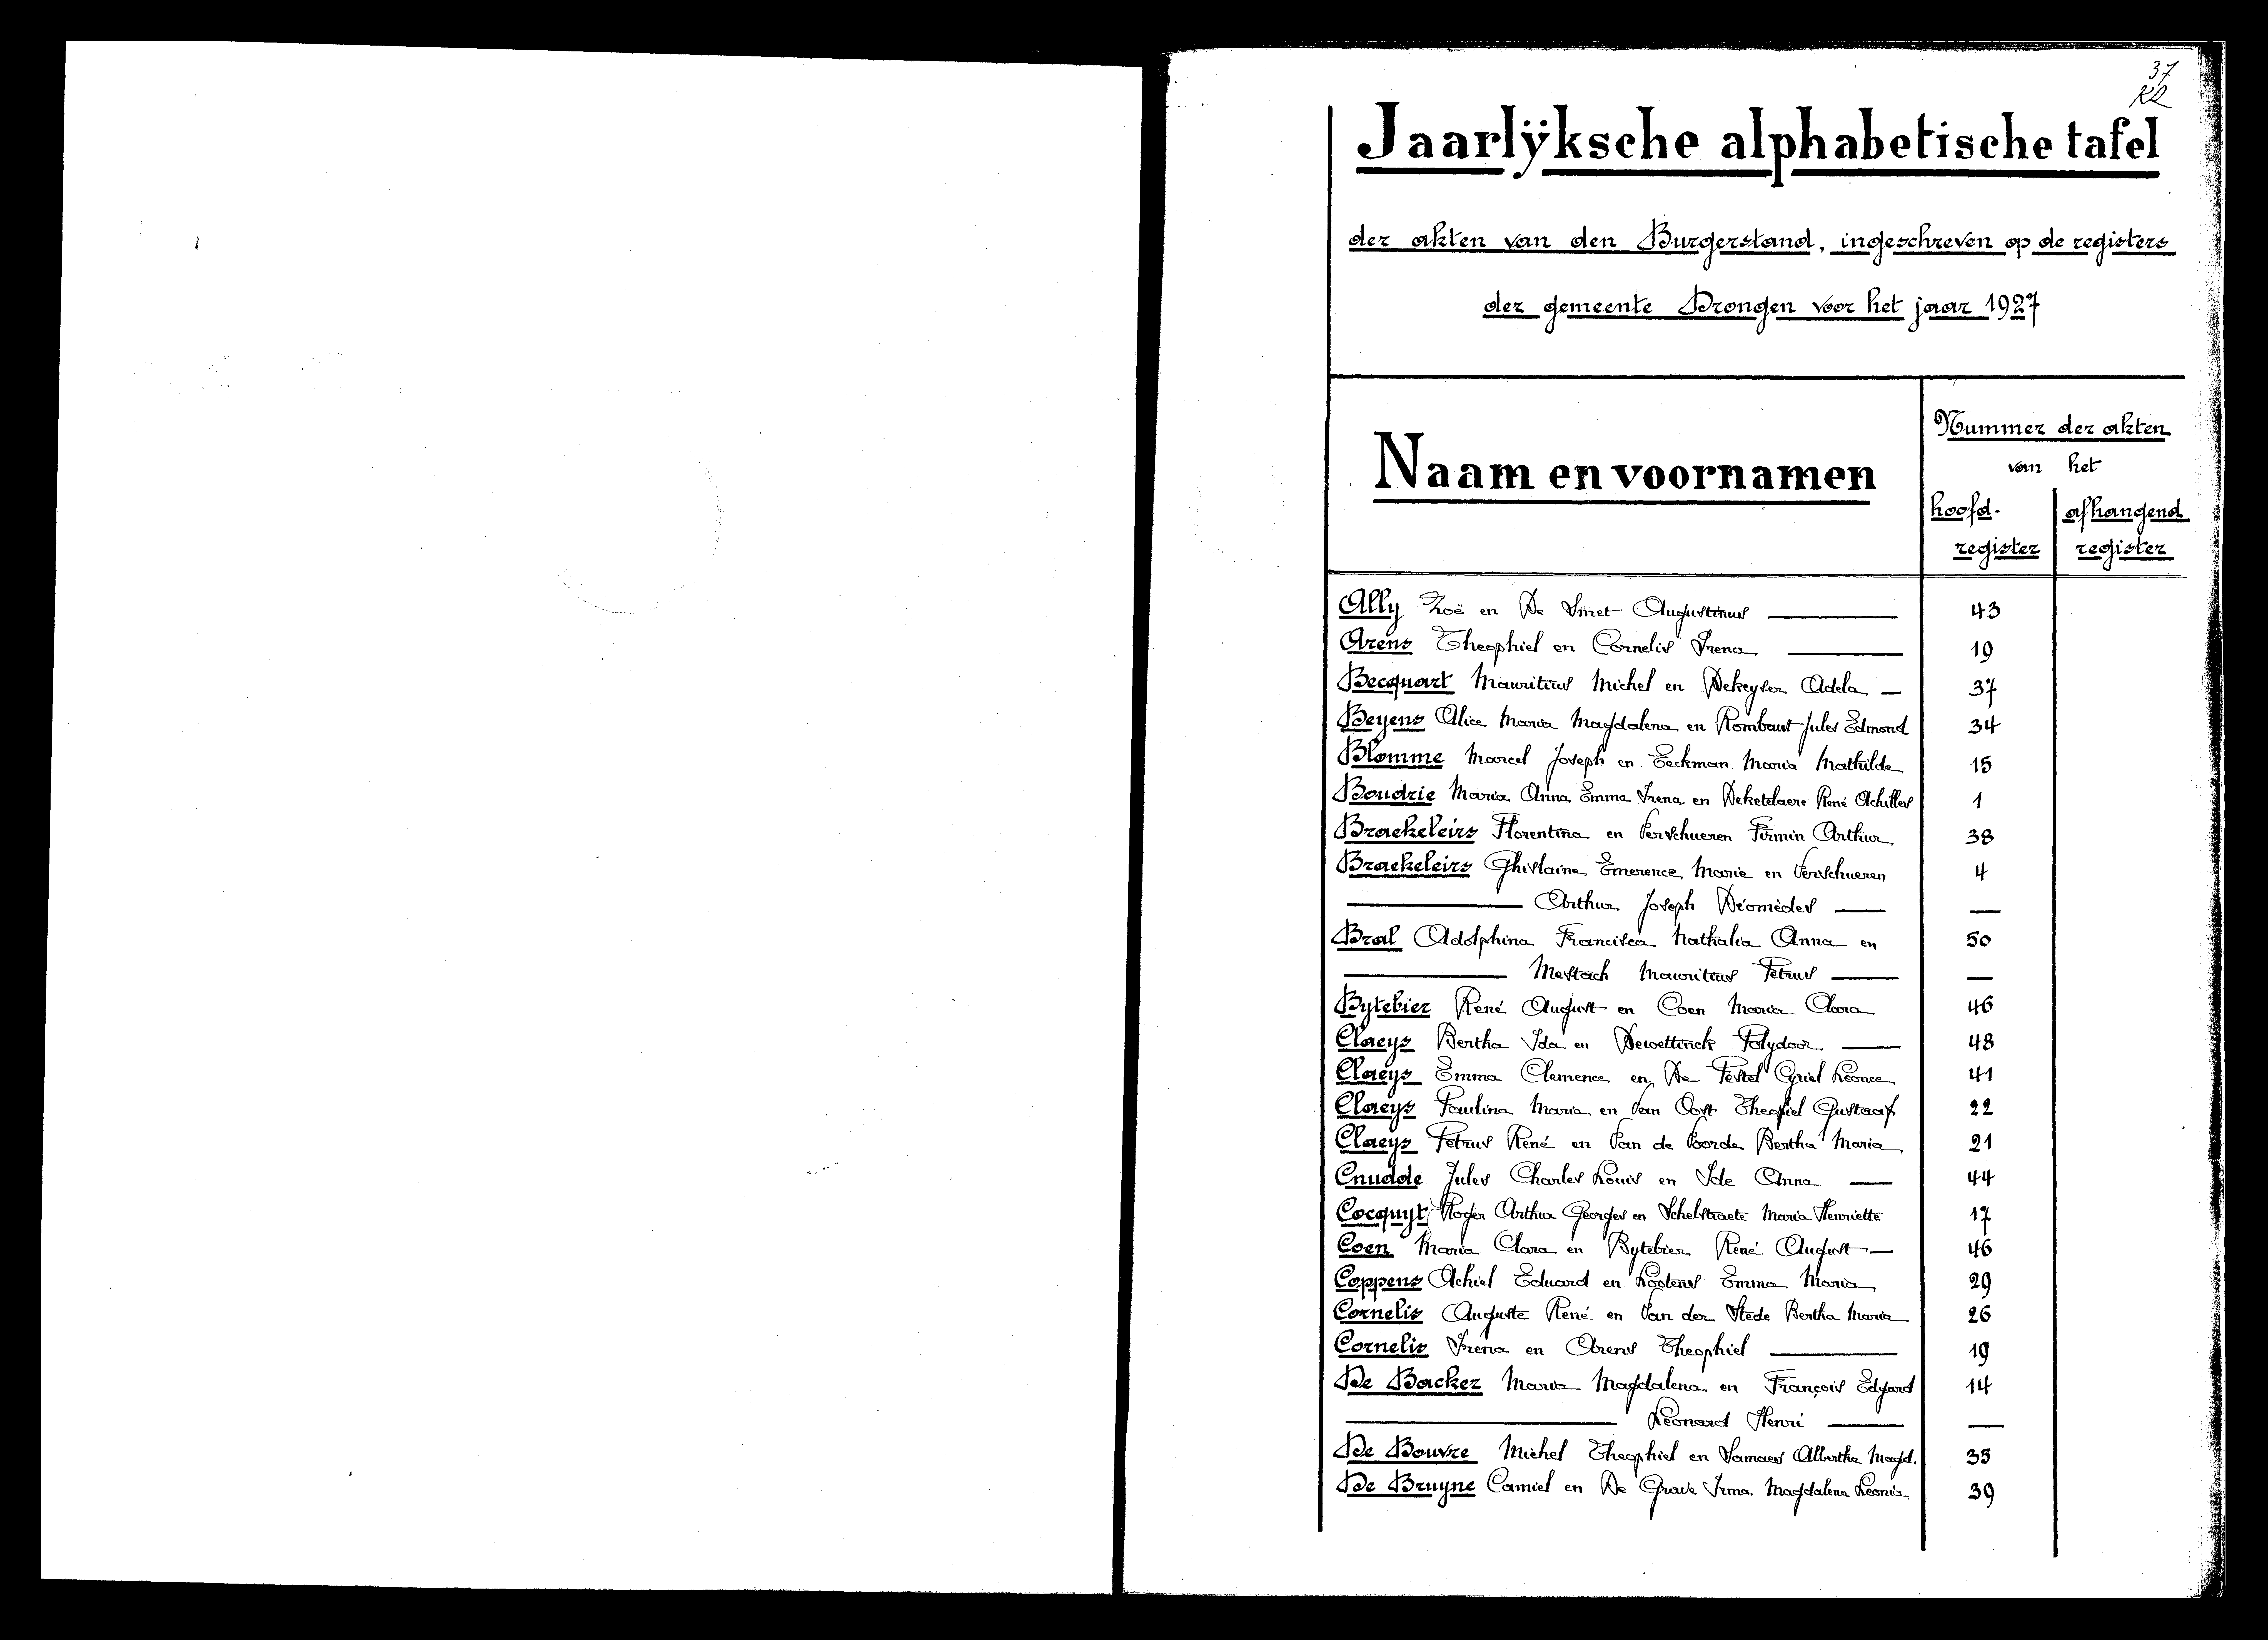 37
Jaarlÿksche alphabetische tafel
der akten van den Burgerstand, ingeschreven op de registers
der gemeente Drongen voor het jaar 1927
Naam en voornamen
Nummer der akten
van het
hoofd-
register
afhangend
register
Ally Zoë en De Smet Augustinus 43
Arens Theophiel en Cornelis Irena 19
Becquart Mauritius Michel en Dekeyser Adela 37
Beyens Alice Maria Magdalena en Rombaut Jules Edmond 34
Blomme Marcel Joseph en Eeckman Maria Mathilde 15
Boudrie Maria Anna Emma Irena en Deketelaere René Achilles 1
Braekeleirs Florentina en Verschueren Firmin Arthur 38
Braekeleirs Ghislaine Emerence Marie en Verschueren 4
Arthur Joseph Déomèdes —
Bral Adolphina Francisca Nathalia Anna en 50
Mestach Mauritius Petrus —
Bytebier René August en Coen Maria Clara 46
Claeys Bertha Ida en Dewettinck Polydoor 48
Claeys Emma Clemence en De Pestel Cyriel Léonce 41
Claeys Paulina Maria en Van Oost Theofiel Gustaaf 22
Claeys Petrus René en Van de Voorde Bertha Maria 21
Cnudde Jules Charles Louis en Ide Anna 44
Cocquyt Roger Arthur Georges en Schelstraete Maria Henriette 17
Coen Maria Clara en Bytebier René August 46
Coppens Achiel Eduard en Lootens Emma Maria 29
Cornelis Auguste René en Van der Stede Bertha Maria 26
Cornelis Irena en Arens Theophiel 19
De Backer Maria Magdalena en François Edgard 14
Léonard Henri —
De Bouvre Michel Theophiel en Samaes Albertha Magd. 35
De Bruyne Camiel en De Grave Irma Magdalena Leonia 39